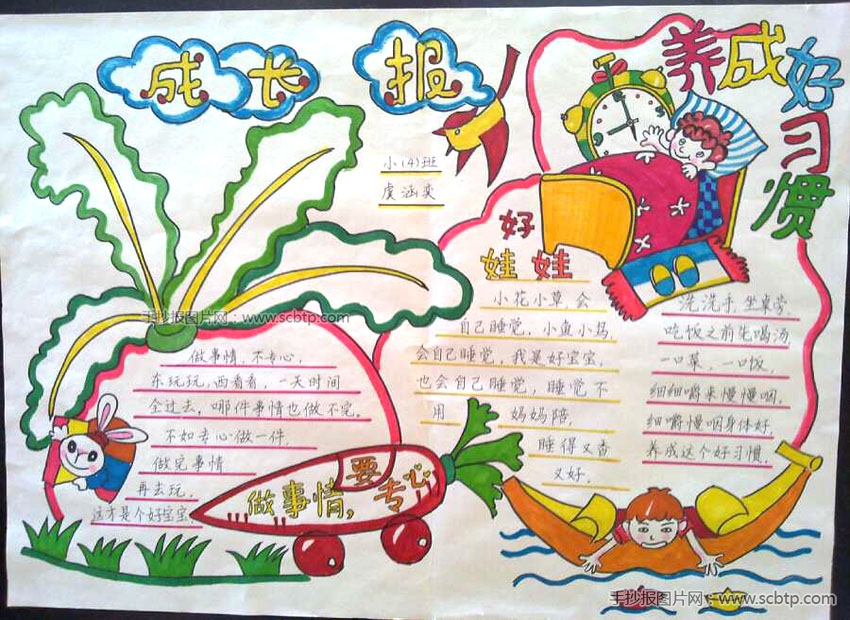 成长报
养成好习惯
小(4)班
虞涵奕
好
娃娃
小花小草会
自己睡觉,小鱼小捣
会自己睡觉,我是好宝宝,
也会自己睡觉,睡觉不
用妈妈陪,
睡得又香
又好。
洗洗手,坐桌旁
吃饭之前先喝汤,
一口菜,一口饭,
细细嚼来慢慢咽,
细嚼慢咽身体好,
养成这个好习惯。
手抄报图片网:www.scbtp.com
做事情,不专心,
东玩玩,西看看,一天时间
全过去,哪件事情也做不完。
不如专心做一件,
做完事情
再去玩,
这才是个好宝宝。
做事情,要专心
手抄报图片网:www.scbtp.com